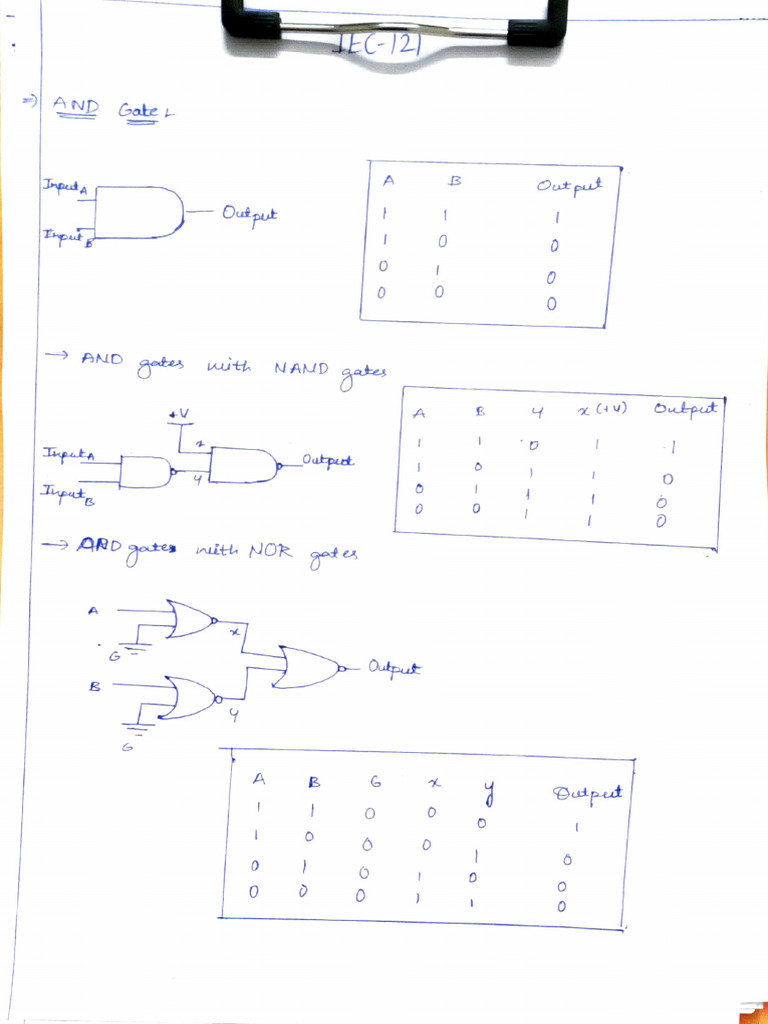 IEC-121
=) AND Gate :-
Input A
Input B
Output
A B Output
1 1 1
1 0 0
0 1 0
0 0 0
→ AND gates with NAND gates
+V
Input A
x
Output
y
Input B
A B y x (+V) Output
1 1 0 1 1
1 0 1 1 0
0 1 1 1 0
0 0 1 1 0
→ AND gates with NOR gates
A
x
G
Output
B
y
G
A B G x y Output
1 1 0 0 0 1
1 0 0 0 1 0
0 1 0 1 0 0
0 0 0 1 1 0